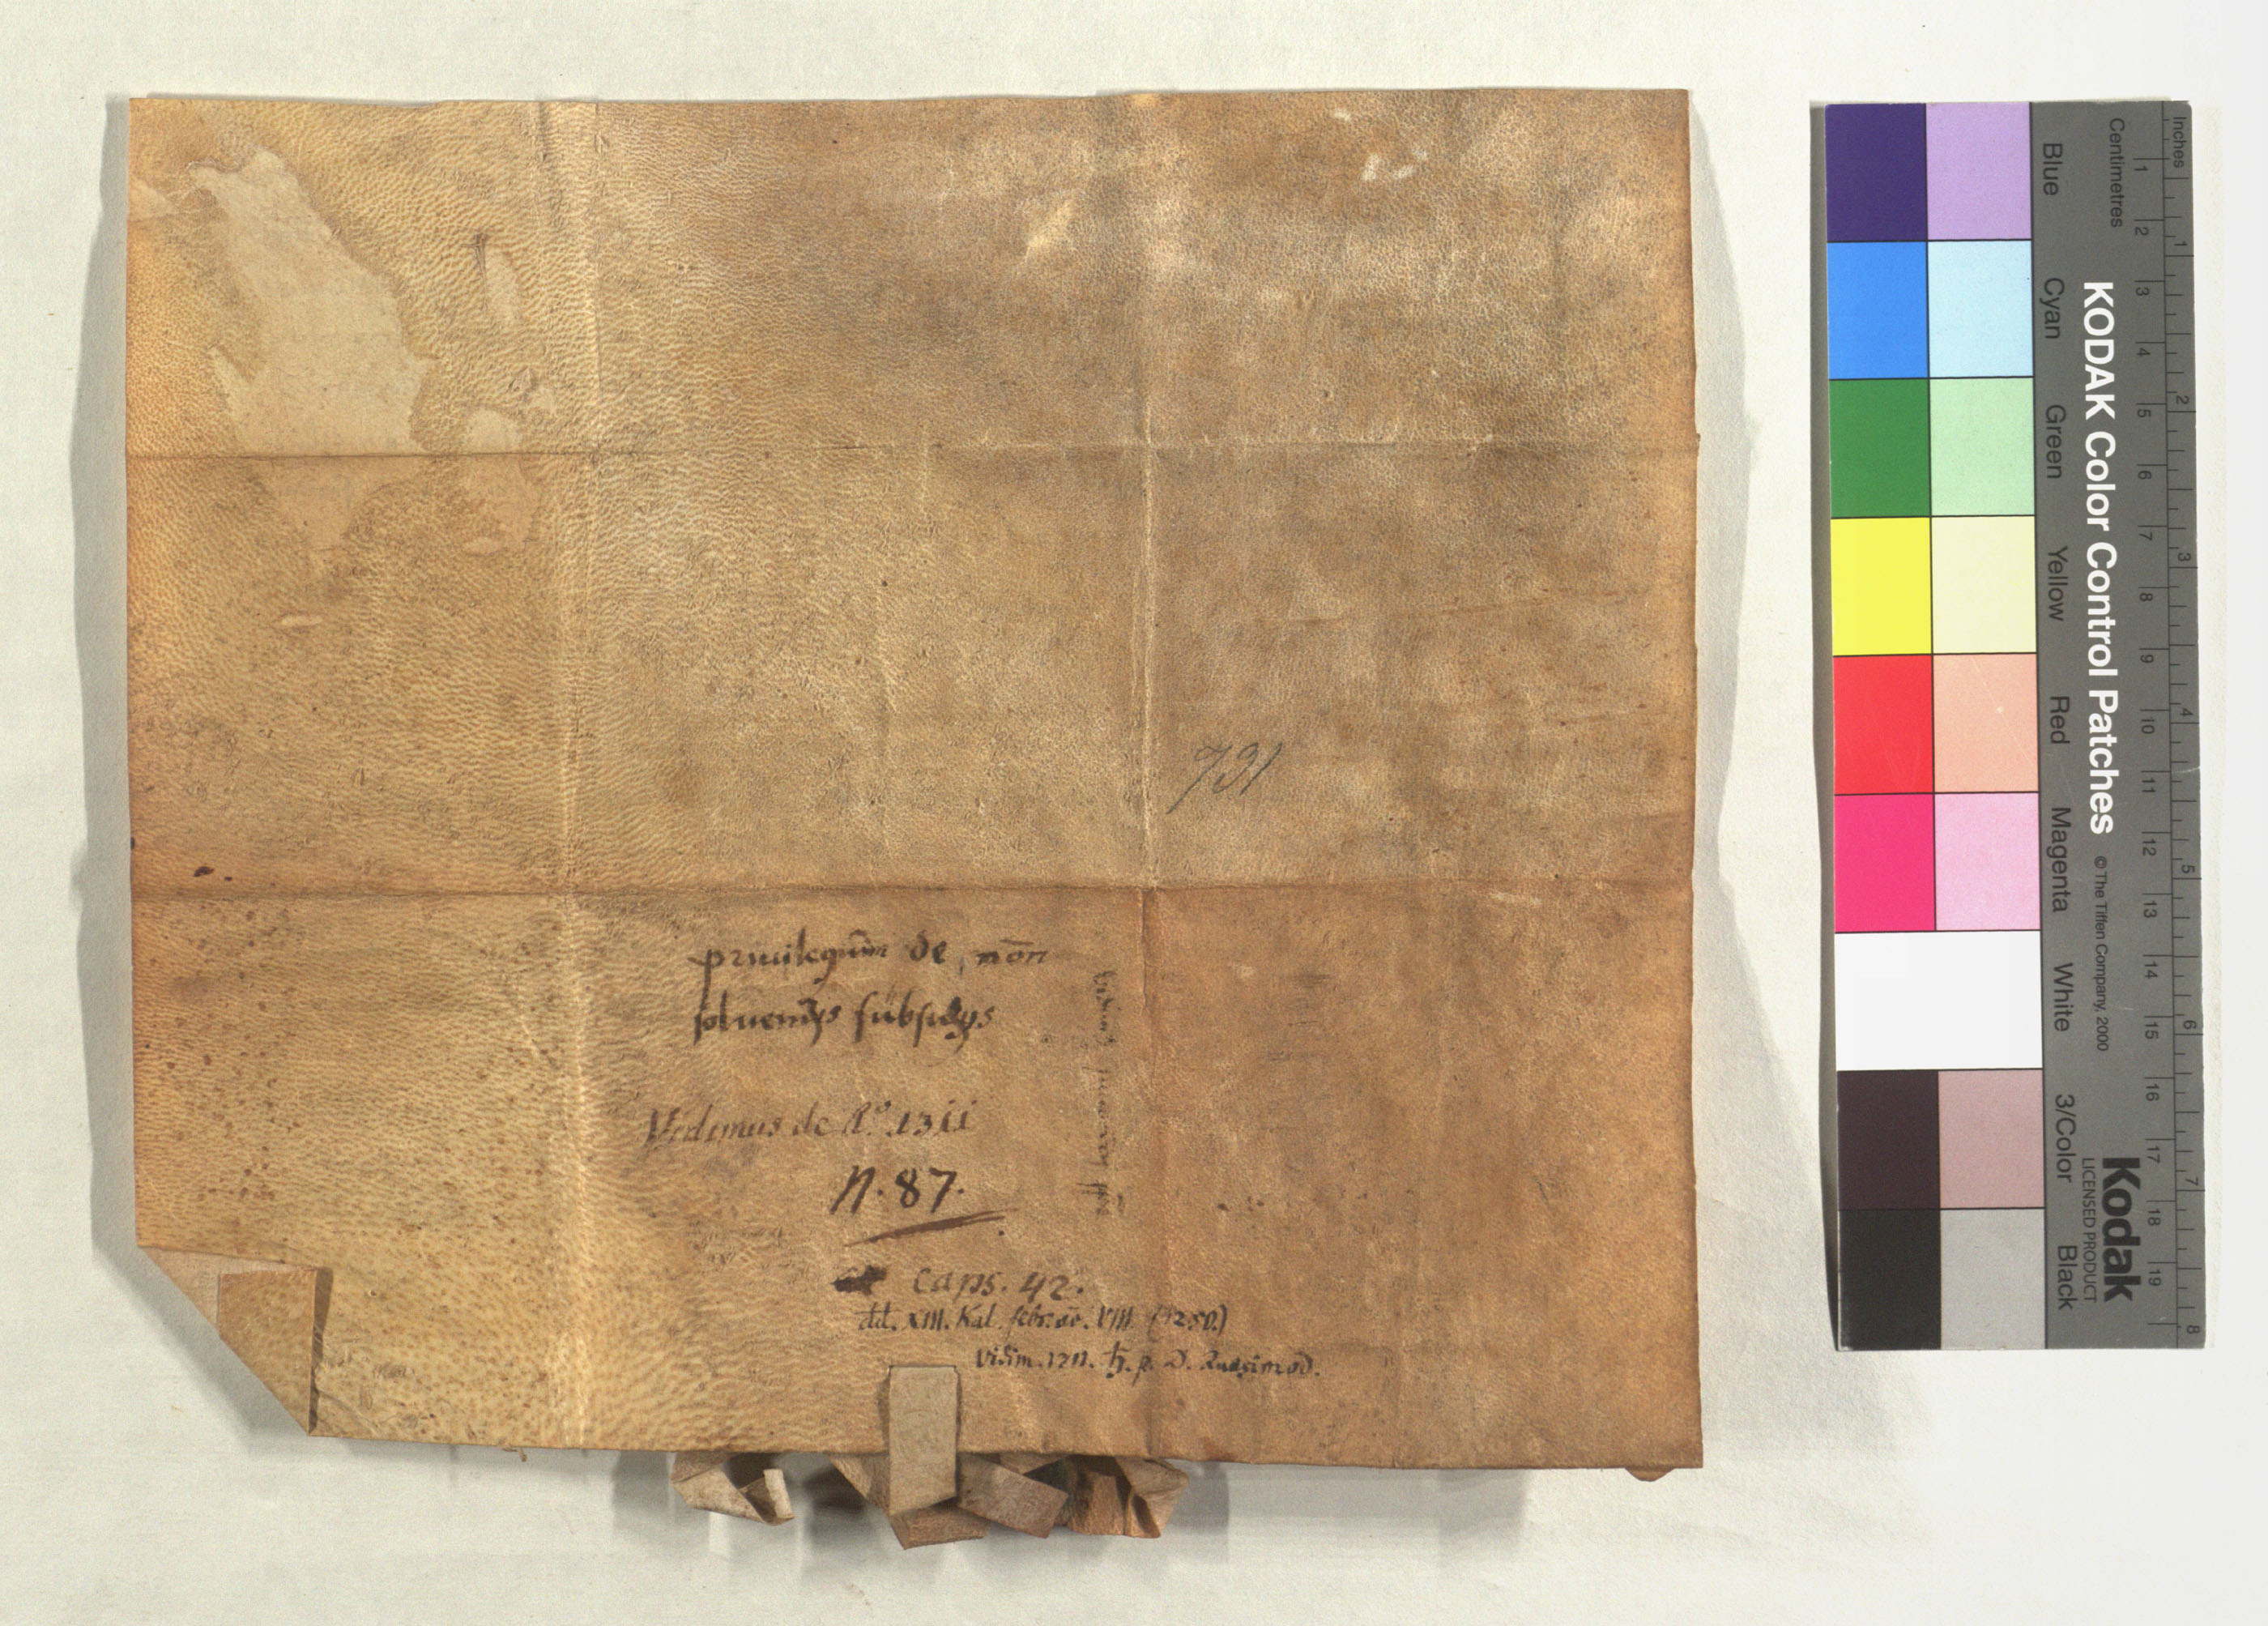 731
privilegiūm de nōn
soluendīs subsidijs
Vidimus de Aº. 1311
N. 87.
caps. 42.
dd. XIII. Kal. febr. ao. VIII (1250.)
Vidim. 1311. ђ. p. D. Quasimod.
Inches 1 2 3 4 5 6 7 8
Centimetres 1 2 3 4 5 6 7 8 9 10 11 12 13 14 15 16 17 18 19
KODAK Color Control Patches © The Tiffen Company, 2000 Kodak
LICENSED PRODUCT
Blue Cyan Green Yellow Red Magenta White 3/Color Black